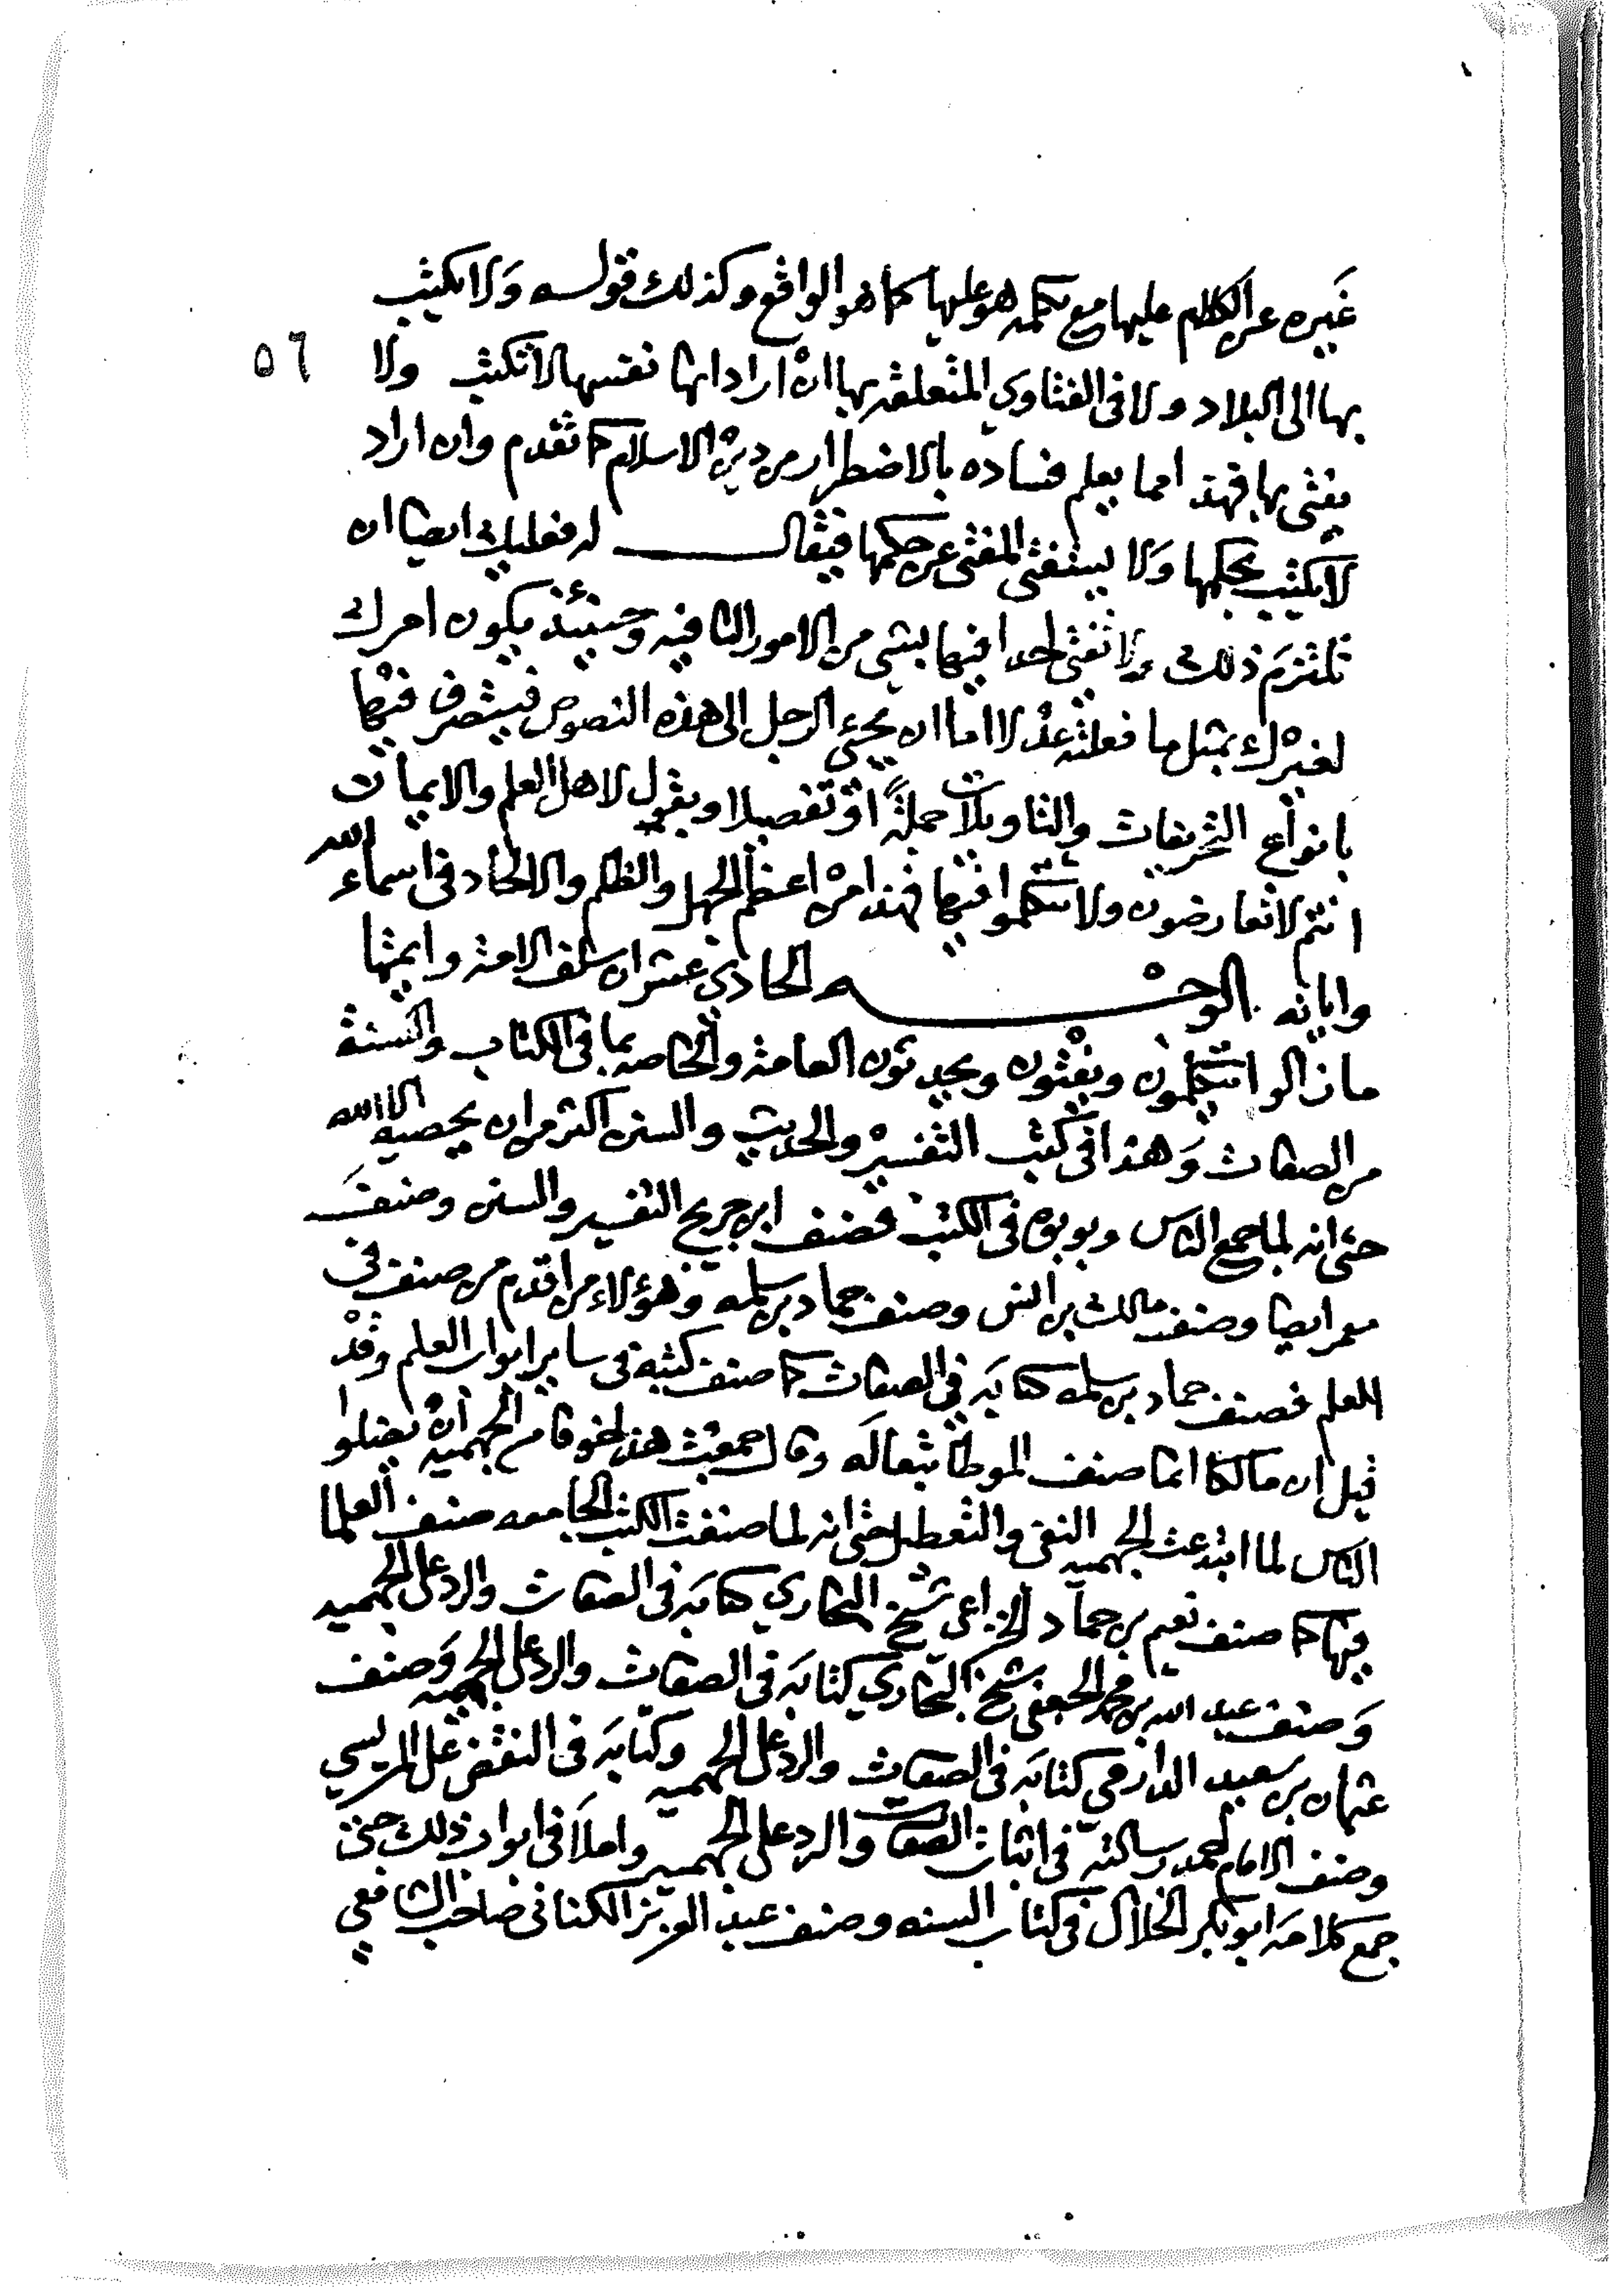 غيره عن الكلام عليها مع تكلمه هو عليها كما هو الواقع وكذلك قوله ولا يكتب
بها الى البلاد ولا فى الفتاوى المتعلقه بها ان اراد انها نفسها لا تكتب ولا
٥٦
يفتى بها فهذا مما يعلم فساده بالاضطرار من دين الاسلام كما تقدم وان اراد
لا يكتب بحكمها ولا يستفتى المفتى عن حكمها فيقال له فعليك ايضا ان
تلتزم ذلك ولا تفتى احدا فيها بشى من الامور النافيه وحينئذ يكون امرك
لغيرك بمثل ما فعلته عدلا اما ان يجئ الرجل الى هذه النصوص فيتصرف فيها
بانواع التحريفات والتاويلات جملة او تفصيلا ويقول لاهل العلم والايمان
انتم لا تعارضون ولا تتكلموا فيها فهذا من اعظم الجهل والظلم والالحاد فى اسماء الله
واياته الوجه الحادى عشر ان سلف الامة وايمتها
ما زالوا يتكلمون ويفتون ويحدثون العامة والخاصه بما فى الكتاب والسنة
من الصفات وهذا فى كتب التفسير والحديث والسنن اكثر من ان يحصيه الا الله
حتى انه لما جمع الناس وبوبوه فى الكتب فصنف ابن جريج التفسير والسنن وصنف
معمر ايضا وصنف مالك بن انس وصنف حماد بن سلمه وهؤلاء من اقدم من صنف فى
العلم فصنف حماد بن سلمه كتابه فى الصفات كما صنف كتبه فى ساير ابواب العلم وقد
قيل ان مالكا انما صنف الموطا تبعا له وقال جمعت هذا خوفا من الجهميه ان يضلوا
الناس لما ابتدعت الجهميه النفى والتعطيل حتى انه لما صنفت الكتب الجامعه صنف العلما
فيها كما صنف نعيم بن حماد الخزاعى شيخ البخاري كتابه فى الصفات والرد على الجهميه
وصنف عبد الله بن محمد الجعفى شيخ البخاري كتابه فى الصفات والرد على الجهميه وصنف
عثمان بن سعيد الدارمي كتابه فى الصفات والرد على الجهميه وكتابه فى النقض على المريسي
وصنف الامام احمد رسالته فى اثبات الصفات والرد على الجهميه واملا فى ابواب ذلك حتى
جمع كلامه ابو بكر الخلال فى كتاب السنه وصنف عبد العزيز الكنانى صاحب الشافعي